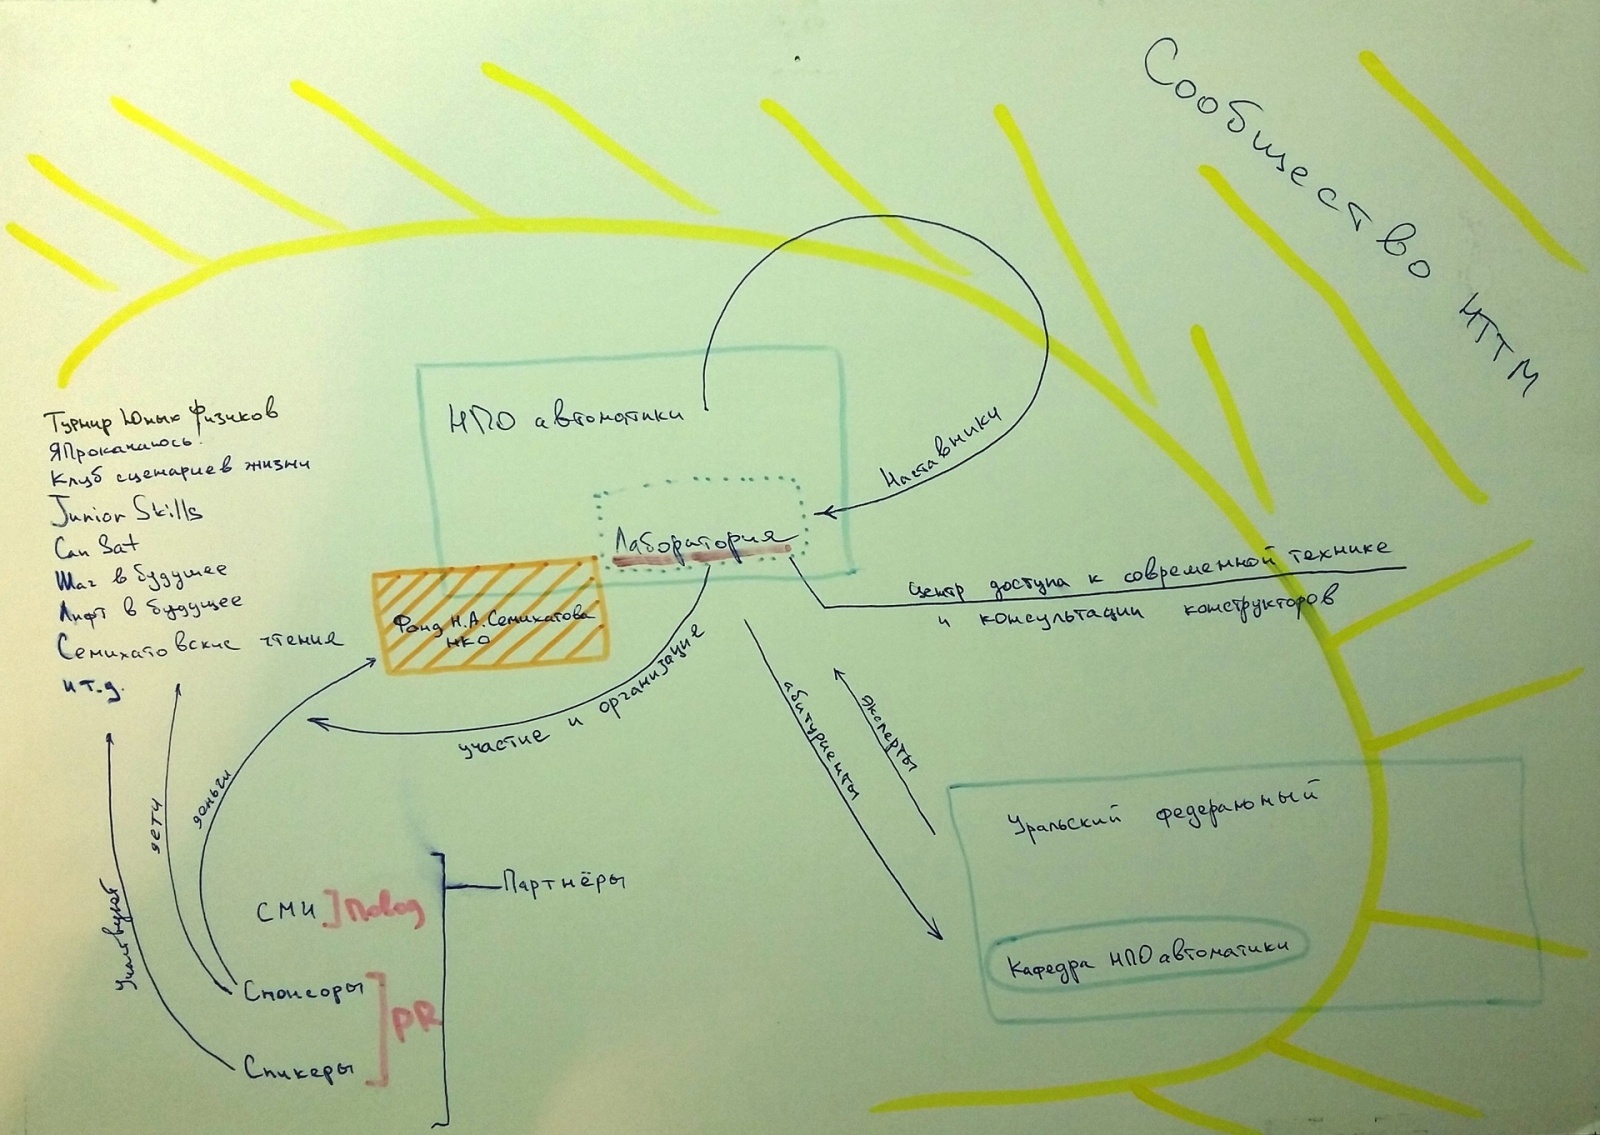 Сообщество НТТМ
НПО автоматики
Наставники
Лаборатория
Центр доступа к современной технике
и консультации конструкторов
Турнир Юных Физиков
ЯПрокачаюсь!
Клуб сценариев жизни
Junior Skills
Can Sat
Шаг в будущее
Лифт в будущее
Семихатовские чтения
и т.д.
Фонд Н.А.Семихатова
НКО
участие и организация
абитуриенты
эксперты
дети
деньги
Уральский федеральный
Кафедра НПО автоматики
Партнёры
СМИ ] Повод
Спонсоры
PR
Спикеры